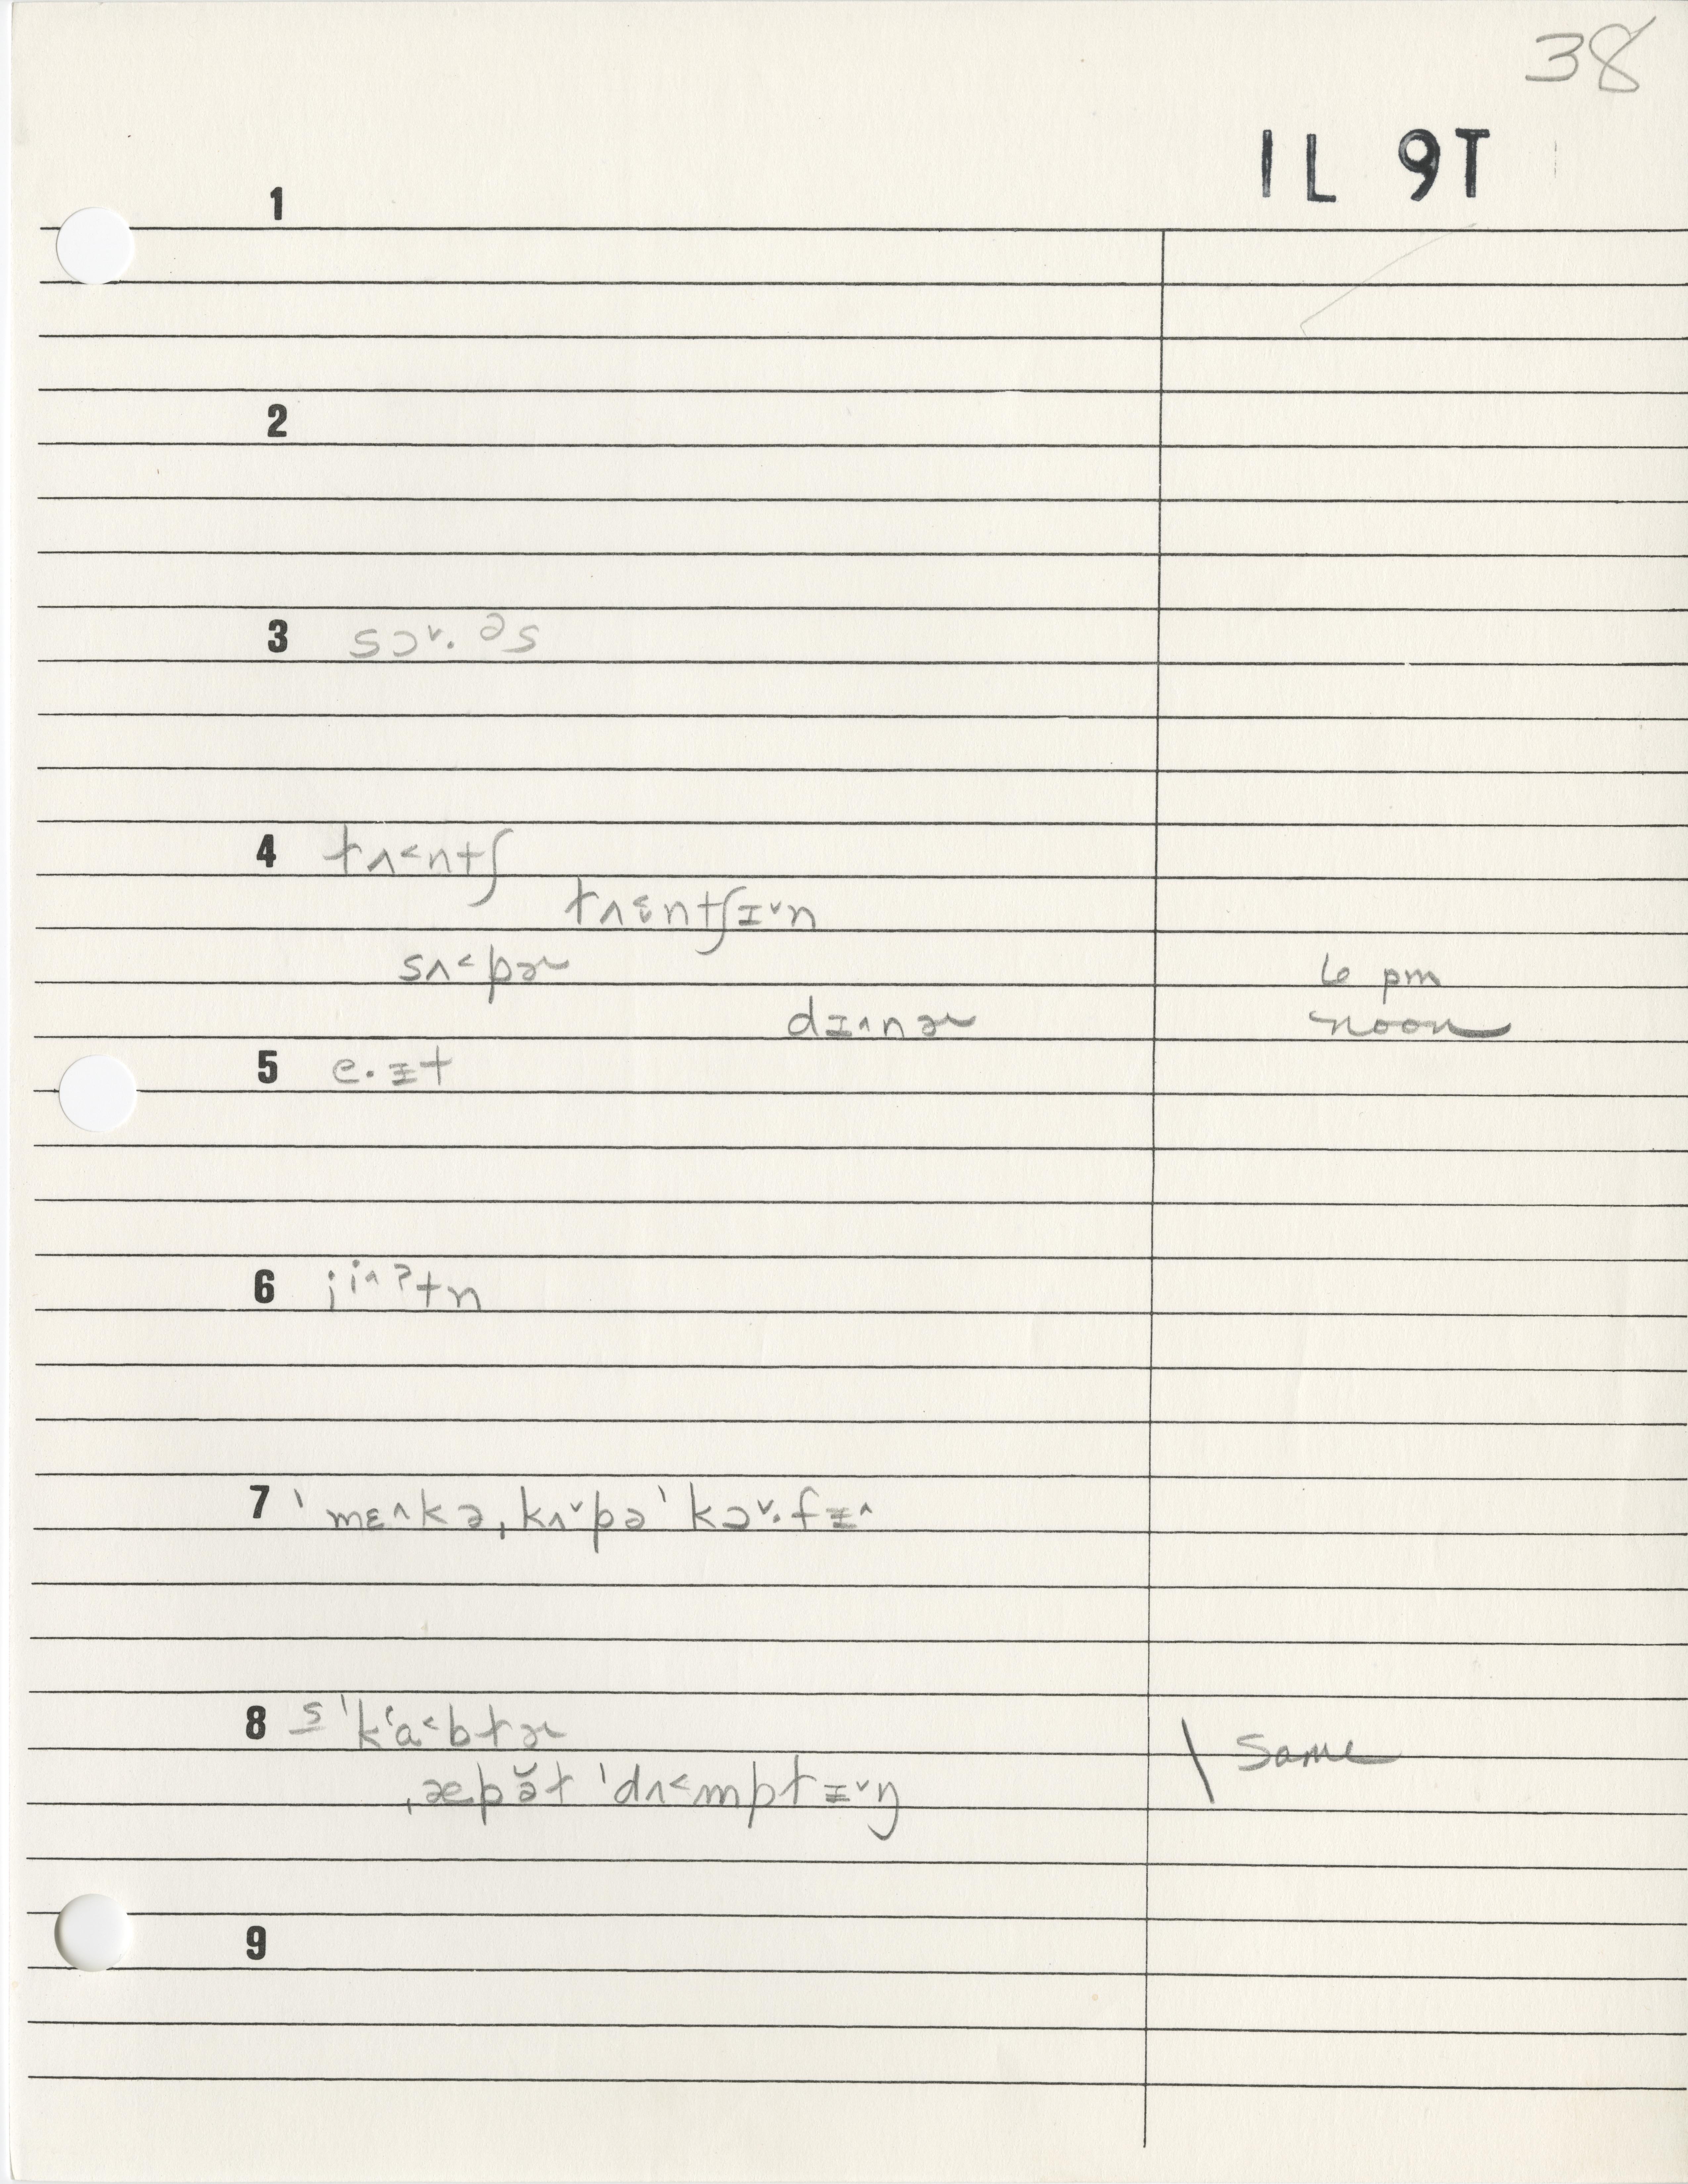 38
IL 9T
1
2
3 sɔ˅· əs
4 tʌ˂ntʃ
tʌ˂ntʃɪ˅n
sʌ˂pɚ 6 pm
dɪ˄nɚ noon
5 e·ɪt
6 ji˄ʔtn
7 ˈmɛ˄kə ˌkʌ˅pə ˈkɔ˅·fɪ˄
8 s ˈk‘a˂btɚ \ same
ˌæpə̆t ˈdʌ˂mptɪ˅ŋ
9